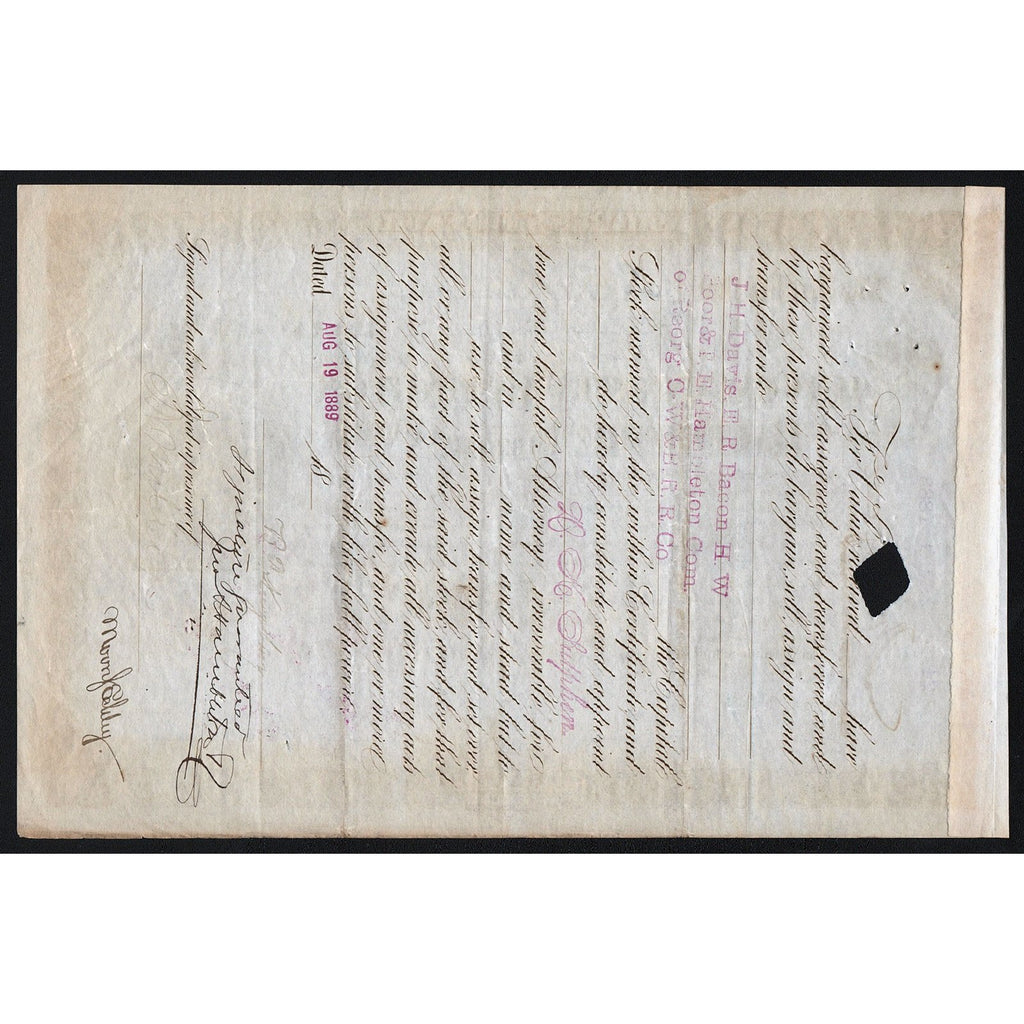 For Value
have
bargained, sold, assigned and transferred, and
by these presents do bargain, sell, assign and
transfer unto
J H Davis E R Bacon H W
Poor & E E Hamilton Com.
Reorg O. W & E R R Co
the Capital
Stock named in the within Certificate, and
do hereby constitute and appoint
H. H. Supphen
true and lawful Attorney, irrevocable, for
and in name and stead but to
use, to sell, assign, transfer and set over
all or any part of the said stock, and for that
purpose to make and execute all necessary acts
of assignment and transfer, and one or more
persons to substitute with like full power.
Dated AUG 19 1889 18
Signed and acknowledged in presence of
Signature guaranteed